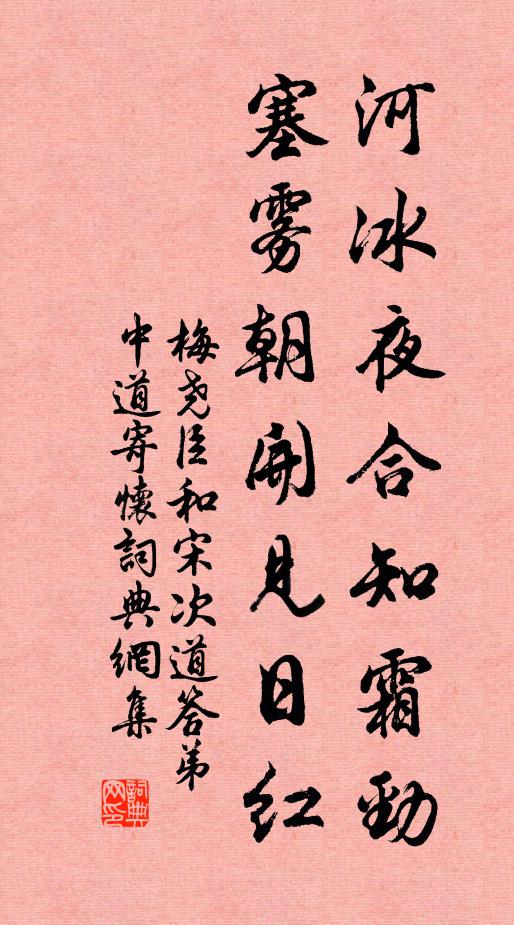 河冰夜合知霜劲
塞雾朝開見日红
梅尧臣和宋次道答弟
中道寄懷詞典網集
詞典
网印